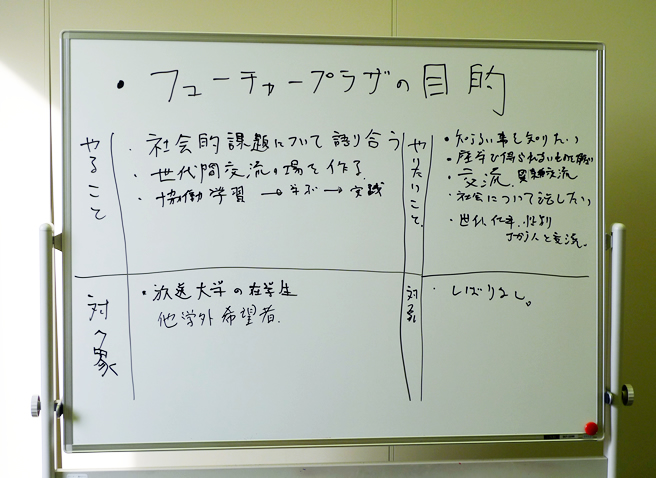 ・フューチャープラザの目的
やること
・社会的課題について語り合う
・世代間交流の場を作る
・協働学習 → 学ぶ → 実践
やりたいこと
・知らない事を知りたい
・座学で得られない
・交流、異業種交流
・社会について話したい
・世代、仕事、性別
ちがう人と交流。
対象
・放送大学の在学生
他学外希望者.
対象
・しばりなし。